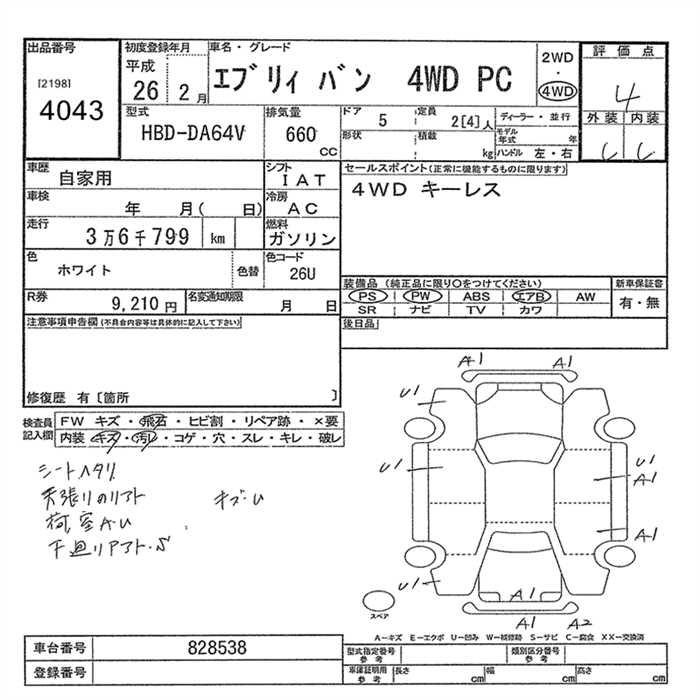 出品番号
[2198]
4043
初度登録年月
平成
26 2 月
車名・グレード
エブリィ バン 4WD PC
2WD
・
4WD
評価点
4
外装 内装
C C
型式
HBD-DA64V
排気量
660
CC
ドア
5
定員
2[4]人
ディーラー・並行
形状
積載
kg
モデル年式 年
ハンドル 左・右
車歴
自家用
シフト
IAT
車検
年 月( 日)
冷房
AC
走行
3万6千799 km
燃料
ガソリン
色
ホワイト
色替
色コード
26U
R券
9,210円
名変通知期限
月 日
セールスポイント(正常に機能するものに限ります)
4WD キーレス
装備品(純正品に限り○をつけてください)
PS PW ABS エアB AW
SR ナビ TV カワ
新車保証書
有・無
後日品
注意事項申告欄(不具合内容等は具体的に記入して下さい)
修復歴 有〔箇所 〕
検査員記入欄
FW キズ・飛石・ヒビ割・リペア跡・×要
内装・キズ・汚レ・コゲ・穴・スレ・キレ・破レ
シートヘタリ
天張りのリフト キズ・U
荷室AU
下廻りアフト・S
A1 A1
U1
U1
U1
A1
A1
U1
A1
A1 A2
スペア
A-キズ E-エクボ U-凹み W-補修跡 S-サビ C-腐食 XX-交換済
車台番号
828538
登録番号
型式指定番号
参考
類別区分番号
参考
車庫証明用
参考
長さ cm 幅 cm 高さ cm